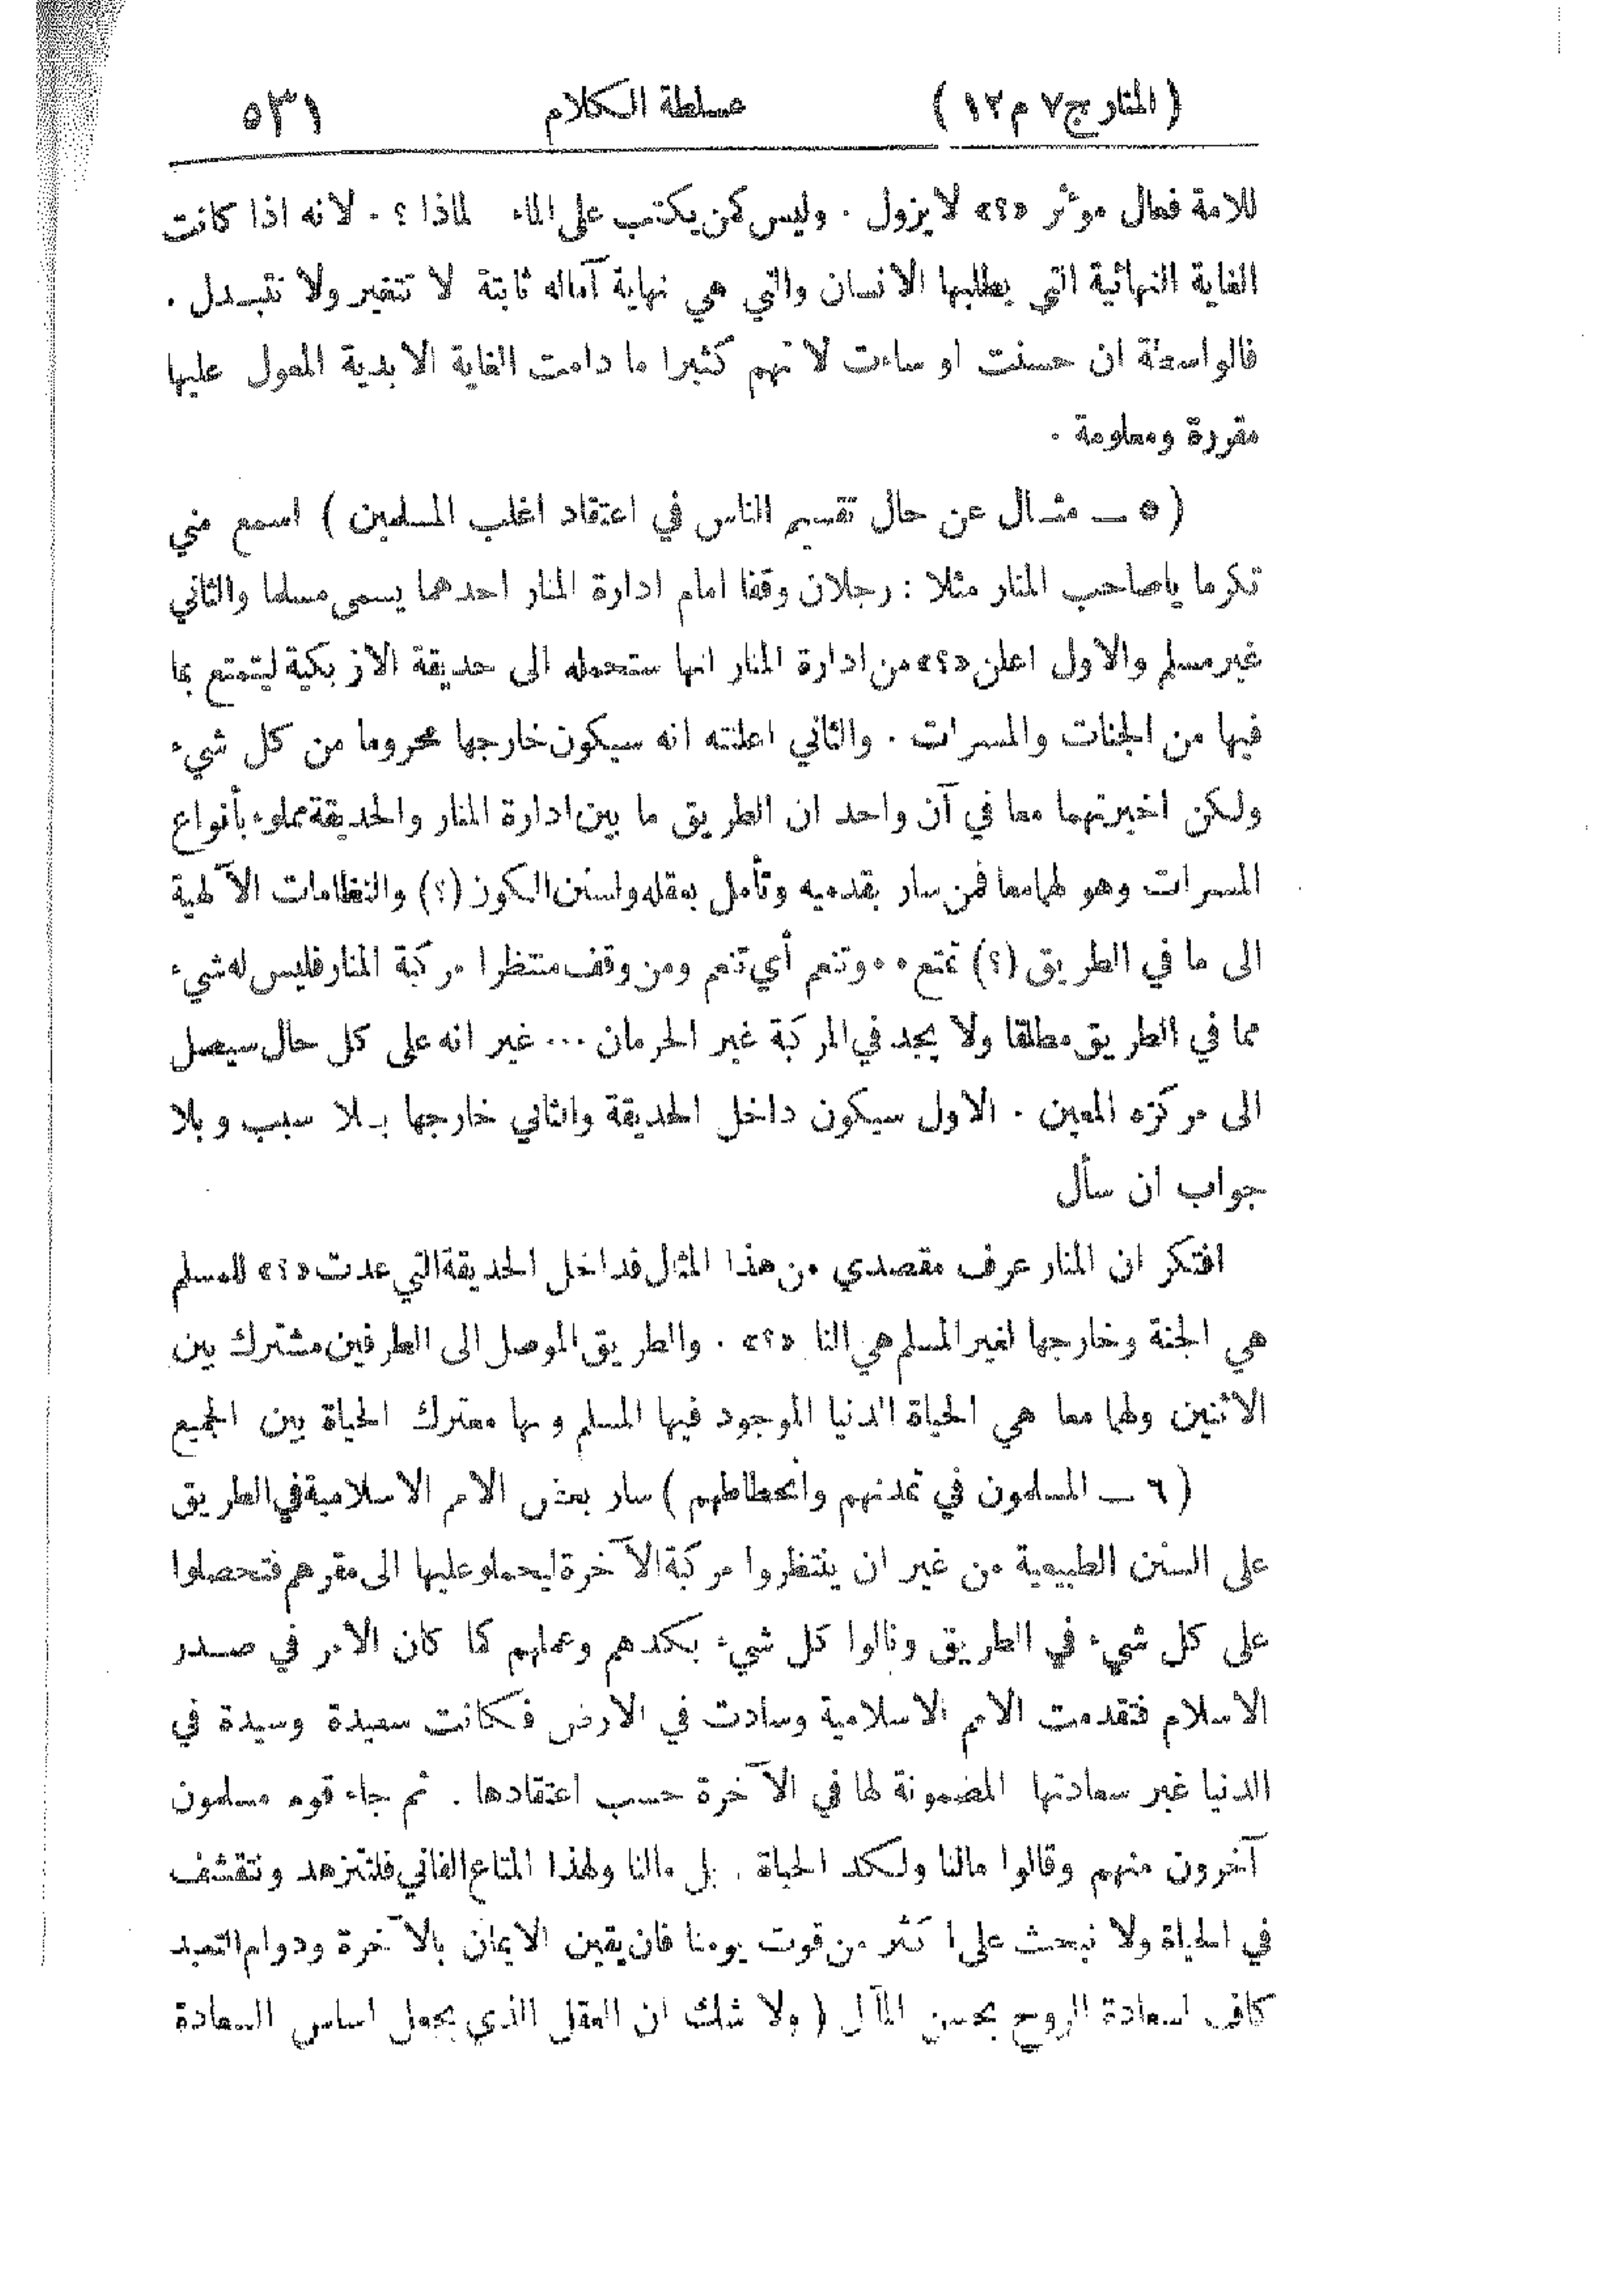 ( المنار ج ٧ م ١٢ ) سلطة الكلام ٥٣١
للامة فعال موثر «؟» لا يزول . وليس كمن يكتب على الماء لماذا ؟ . لانه اذا كانت
الغاية النهائية التي يطلبها الانسان والتي هي نهاية آماله ثابتة لا تتغير ولا تتبدل .
فالواسطة ان حسنت او ساءت لا تهم كثيرا ما دامت الغاية الابدية المعول عليها
مقررة ومعلومة .
( ٥ ـ مثال عن حال تقسيم الناس في اعتقاد اغلب المسلمين ) اسمع مني
تكرما ياصاحب المنار مثلا : رجلان وقفا امام ادارة المنار احدهما يسمى مسلما والثاني
غير مسلم والاول اعلن «؟» من ادارة المنار انها ستحمله الى حديقة الازبكية ليتمتع بما
فيها من الجنات والمسرات . والثاني اعلنته انه سيكون خارجها محروما من كل شيء
ولكن اخبرتهما معا في آن واحد ان الطريق ما بين ادارة المنار والحديقة مملوء بأنواع
المسرات وهو لهما معا فمن سار بقدميه وتأمل بعقله ولسنن الكون (؟) والنظامات الآلهية
الى ما في الطريق (؟) تمتع ٠٠ وتنعم أي تنعم ومن وقف منتظرا مركبة المنار فليس له شيء
مما في الطريق مطلقا ولا يجد في المركبة غير الحرمان ... غير انه على كل حال سيصل
الى مركزه المعين . الاول سيكون داخل الحديقة والثاني خارجها بلا سبب وبلا
جواب ان سأل
افتكر ان المنار عرف مقصدي من هذا المثال فداخل الحديقة التي عدت «؟» للمسلم
هي الجنة وخارجها لغير المسلم هي النا «؟» . والطريق الموصل الى الطرفين مشترك بين
الاثنين ولهما معا هي الحياة الدنيا الموجود فيها المسلم وبها معترك الحياة بين الجميع
( ٦ ـ المسلمون في تمدنهم وانحطاطهم ) سار بعض الامم الاسلامية في الطريق
على السنن الطبيعية من غير ان ينتظروا مركبة الآخرة ليحملو عليها الى مقرهم فتحصلوا
على كل شيء في الطريق ونالوا كل شيء بكدهم وعملهم كما كان الامر في صدر
الاسلام فتقدمت الامم الاسلامية وسادت في الارض فكانت سعيدة وسيدة في
الدنيا غير سعادتها المضمونة لها في الآخرة حسب اعتقادها . ثم جاء قوم مسلمون
آخرون منهم وقالوا مالنا ولكد الحياة . بل مالنا ولهذا المتاع الفاني فلنتزهد ونتقشف
في الحياة ولا نبحث على اكثر من قوت يومنا فان يقين الايمان بالآخرة ودوام التعبد
كافى لسعادة الروح بحسن المآل ( ولا شك ان العقل الذي يجعل اساس السعادة